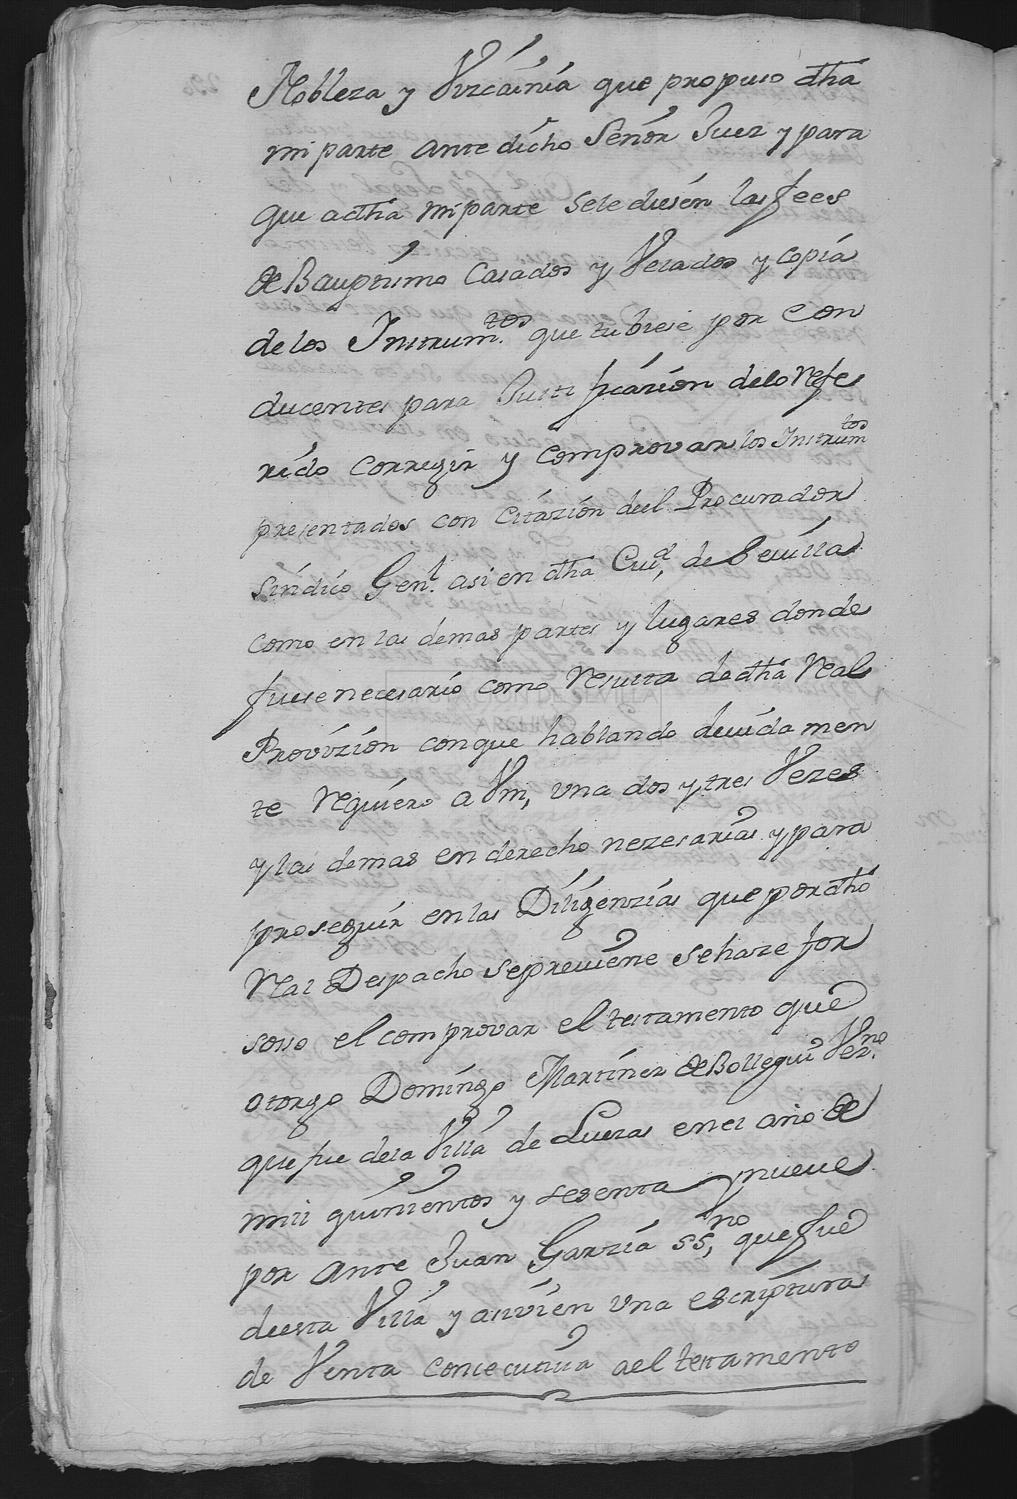 Nobleza y Vizcainia que propuso dha
mi parte ante dicho Señor Juez y para
que a dha mi parte se le diesen las fees
de Bauptismo Casados y Velados y copia
de los Instrum.tos que tubiese por Con
ducentes para Justificazion de lo Refe
rido corregir y comprovar los Instrumtos
presentados con Citazion del Procurador
Sindico Genl. asi en dha Ciud, de Sevilla
como en las demas partes y lugares donde
fuese necesario como Resulta de dha Real
Provizion con que hablando devidamen
te Requiero a Vm, una dos y tres Vezes
y las demas en derecho nezesarias y para
proseguir en las Diligenzias que por dho
Real Despacho se previene se haze for
soso el comprovar el testamento que
otorgo Domingo Martinez de Bollegui Vez.no
que fue de la Villa de Lueras en el año de
mill quinientos y sesenta y nueve
por ante Juan Garzia ss,no que fue
de esta Villa y asi vien una escriptura
de Venta consecutiva a el testamento
DIPUTACION DE SEVILLA